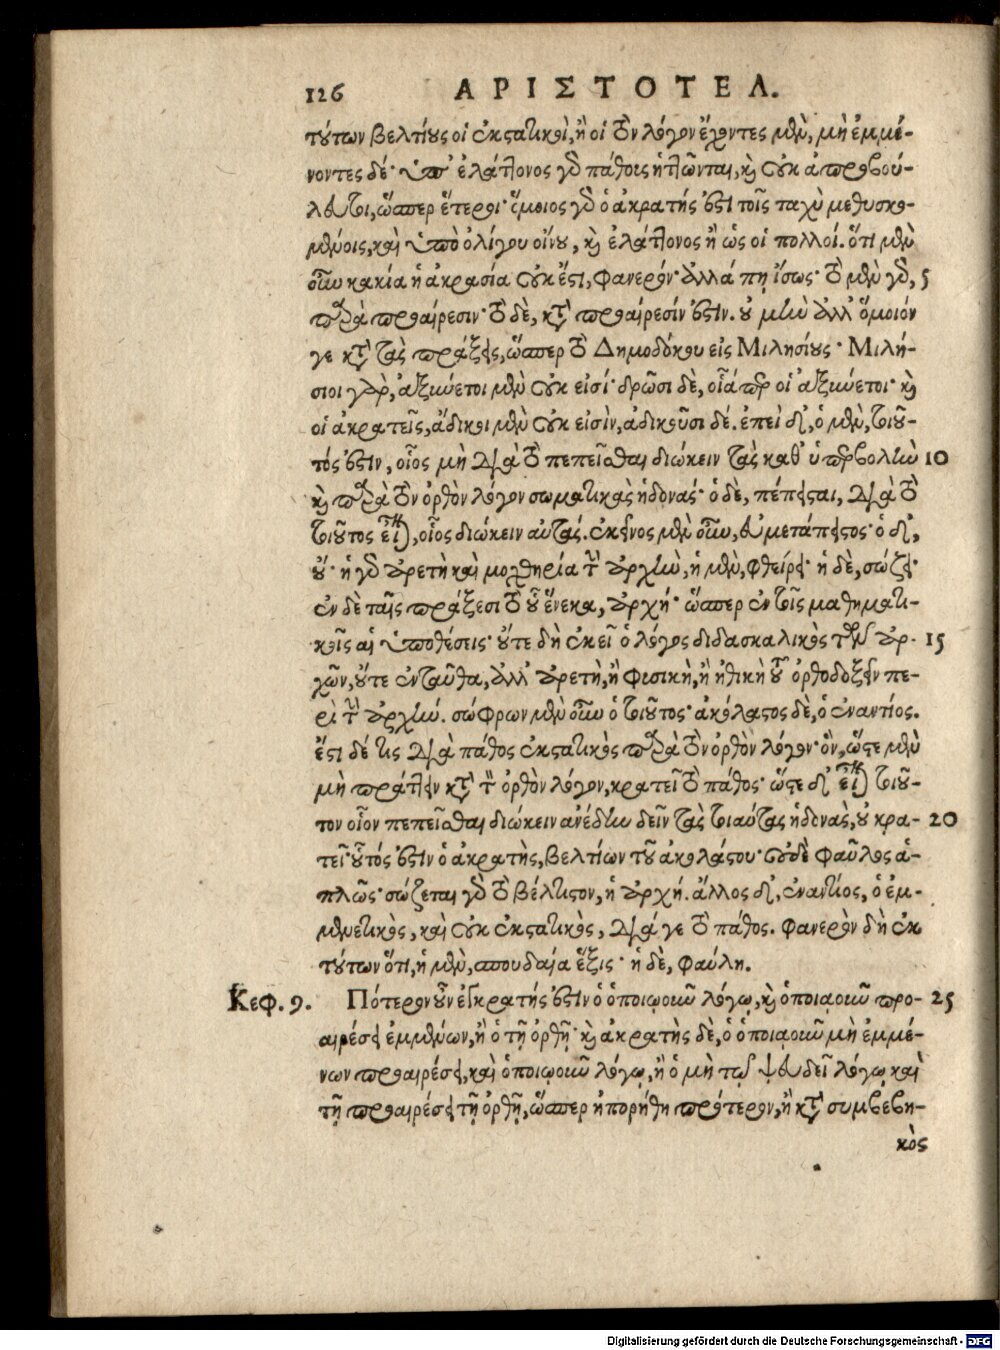 126 ΑΡΙΣΤΟΤΕΛ.
τύτων βελτίυς οἱ ἐκστατικοὶ, ἢ οἱ τὸν λόγον ἔχοντες μὲν, μὴ ἐμμέ-
νοντες δέ· ὑπ' ἐλάττονος γὸ πάθοις ἡττῶνται, καὶ οὐκ ἀπροβού-
λευτοι, ὥσπερ ἕτεροι· ὅμοιος γὸ ὁ ἀκρατής ἐστι τοῖς ταχὺ μεθυσκο-
μένοις, καὶ ὑπὸ ὀλίγου οἴνυ, καὶ ἐλάττονος ἢ ὡς οἱ πολλοί. ὅτι μὲν
οὖν κακία ἡ ἀκρασία οὐκ ἔστι, φανερόν· ἀλλά πῃ ἴσως· τὸ μὲν γὸ, 5
παρὰ προαίρεσιν· τὸ δὲ, κατὰ προαίρεσίν ἐστιν. ὐ μὴν ἀλλ' ὅμοιόν
γε κατὰ τὰς πράξεις, ὥσπερ τὸ Δημοδόκου εἰς Μιλησίυς· Μιλή-
σιοι γὰρ, ἀξιύετοι μὲν οὐκ εἰσί· δρῶσι δὲ, οἷάπερ οἱ ἀξιύετοι· καὶ
οἱ ἀκρατεῖς, ἄδικοι μὲν οὐκ εἰσὶν, ἀδικοῦσι δέ. ἐπεὶ δ', ὁ μὲν, τοιῦ-
τός ἐστιν, οἷος μὴ διὰ τὸ πεπεῖσθαι διώκειν τὰς καθ' ὑπερβολὴν 10
καὶ παρὰ τὸν ὀρθὸν λόγον σωματικὰς ἡδονάς· ὁ δὲ, πέπεισται, διὰ τὸ
τοιῦτος εἶναι, οἷος διώκειν αὐτάς. ἐκεῖνος μὲν οὖν, εὐμετάπειστος· ὁ δ',
ὔ· ἡ γὸ ἀρετὴ καὶ μοχθηρία τὴν ἀρχὴν, ἡ μὲν, φθείρει· ἡ δὲ, σώζει·
ἐν δὲ ταῖς πράξεσι τὸ ὗ ἕνεκα, ἀρχή· ὥσπερ ἐν τοῖς μαθηματι-
κοῖς αἱ ὑποθέσεις· ὔτε δὴ ἐκεῖ ὁ λόγος διδασκαλικὸς τῶν ἀρ- 15
χῶν, ὔτε ἐνταῦθα, ἀλλ' ἀρετὴ, ἢ φισικὴ, ἢ ἠθικὴ τῦ ὀρθοδοξεῖν πε-
ρὶ τὴν ἀρχήν. σώφρων μὲν οὖν ὁ τοιῦτος· ἀκόλαστος δὲ, ὁ ἐναντίος.
ἔστι δέ τις διὰ πάθος ἐκστατικὸς παρὰ τὸν ὀρθὸν λόγον· ὃν, ὥστε μὲν
μὴ πράττειν κατὰ τὸν ὀρθὸν λόγον, κρατεῖ τὸ πάθος· ὥστε δ' εἶναι τοιῦ-
τον οἷον πεπεῖσθαι διώκειν ἀνέδην δεῖν τὰς τοιαύτας ἡδονὰς, ὐ κρα- 20
τεῖ· ὗτός ἐστιν ὁ ἀκρατὴς, βελτίων τῦ ἀκολάστου· οὐδὲ φαῦλος ἁ-
πλῶς· σώζεται γὸ τὸ βέλτιστον, ἡ ἀρχή. ἄλλος δ', ἐναντίος, ὁ ἐμ-
μενετικὸς, καὶ οὐκ ἐκστατικὸς, διά γε τὸ πάθος. φανερὸν δὴ ἐκ
τύτων ὅτι, ἡ μὲν, σπουδαία ἕξις· ἡ δὲ, φαύλη.
Κεφ. 9. Πότερον ὖν ἐγκρατής ἐστιν ὁ ὁποιῳοῦν λόγῳ, καὶ ὁποιᾳοῦν προ- 25
αιρέσει ἐμμένων, ἢ ὁ τῇ ὀρθῇ· καὶ ἀκρατὴς δὲ, ὁ ὁποιᾳοῦν μὴ ἐμμέ-
νων προαιρέσει, καὶ ὁποιῳοῦν λόγῳ, ἢ ὁ μὴ τῷ ψευδεῖ λόγῳ καὶ
τῇ προαιρέσει τῇ ὀρθῇ, ὥσπερ ἠπορήθη πρότερον, ἢ κατὰ συμβεβη-
κὸς
Digitalisierung gefördert durch die Deutsche Forschungsgemeinschaft - DFG